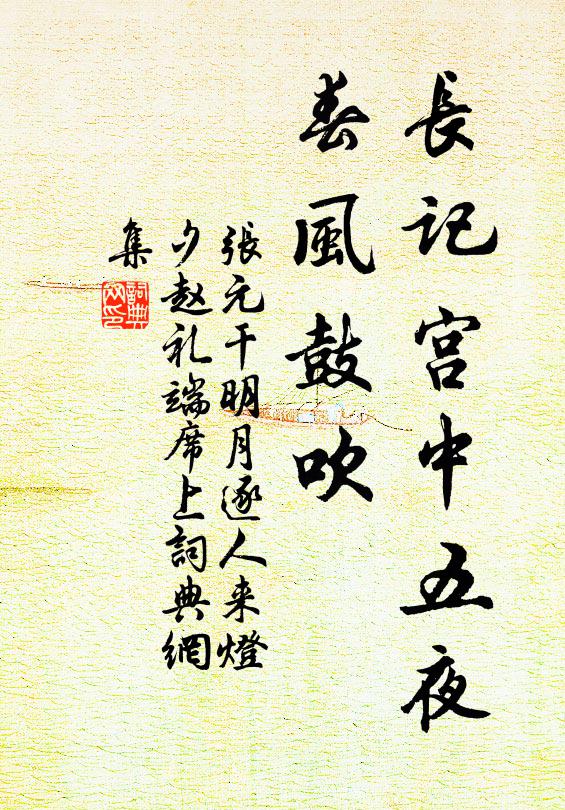 長记宫中五夜
春風鼓吹
張元干明月逐人来燈
夕赵礼端席上詞典網
集
詞典網印